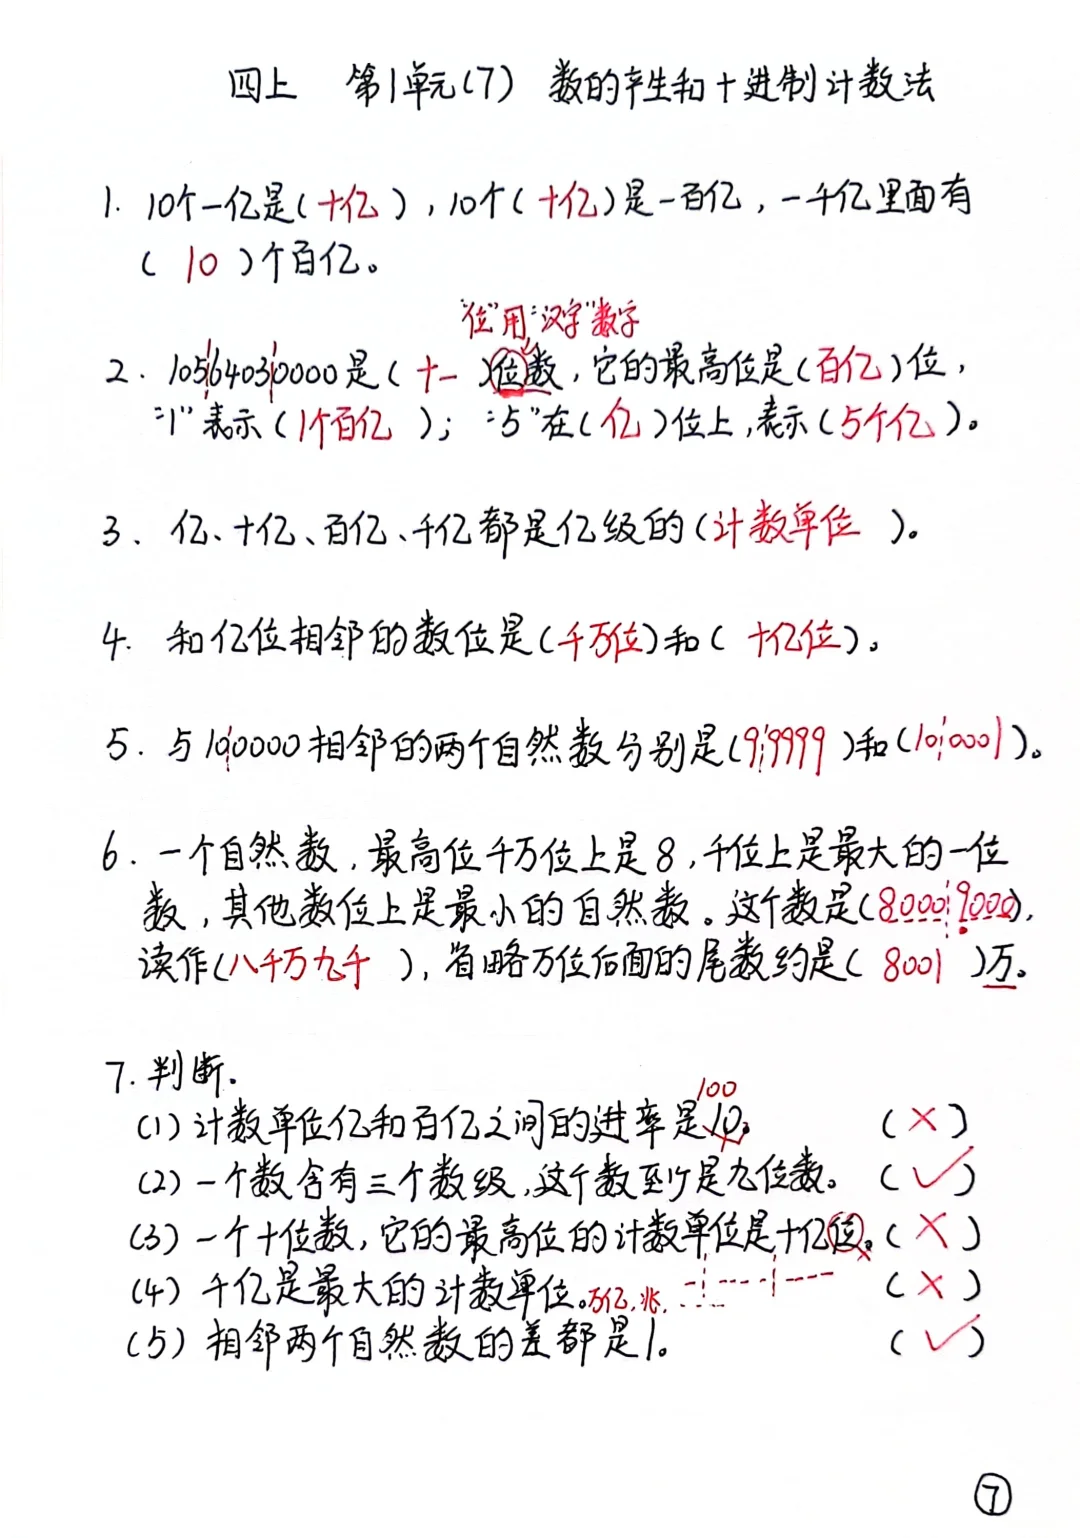 四上 第1单元(7) 数的产生和十进制计数法
1. 10个一亿是(十亿),10个(十亿)是一百亿,一千亿里面有
(10)个百亿。
“位”用“汉字”数字
2. 10564030000是(十一)位数,它的最高位是(百亿)位,
“1”表示(1个百亿);“5”在(亿)位上,表示(5个亿)。
3. 亿、十亿、百亿、千亿都是亿级的(计数单位)。
4. 和亿位相邻的数位是(千万位)和(十亿位)。
5. 与100000相邻的两个自然数分别是(99999)和(100001)。
6. 一个自然数,最高位千万位上是8,千位上是最大的一位
数,其他数位上是最小的自然数。这个数是(80009000),
读作(八千万九千),省略万位后面的尾数约是(8001)万。
7. 判断.
100
(1) 计数单位亿和百亿之间的进率是10。 (×)
(2) 一个数含有三个数级,这个数至少是九位数。 (✓)
(3) 一个十位数,它的最高位的计数单位是十亿位。 (×)
(4) 千亿是最大的计数单位。万亿,兆, ...... (×)
(5) 相邻两个自然数的差都是1。 (✓)
⑦